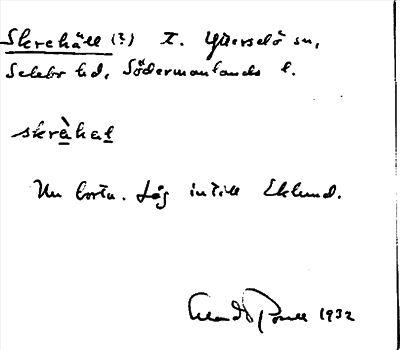 Skrehäll (?) t. Ytterselö sn,
Selebo hd, Södermanlands l.
skràhaḷ
Nu borta. Låg intill Eklund.
1932